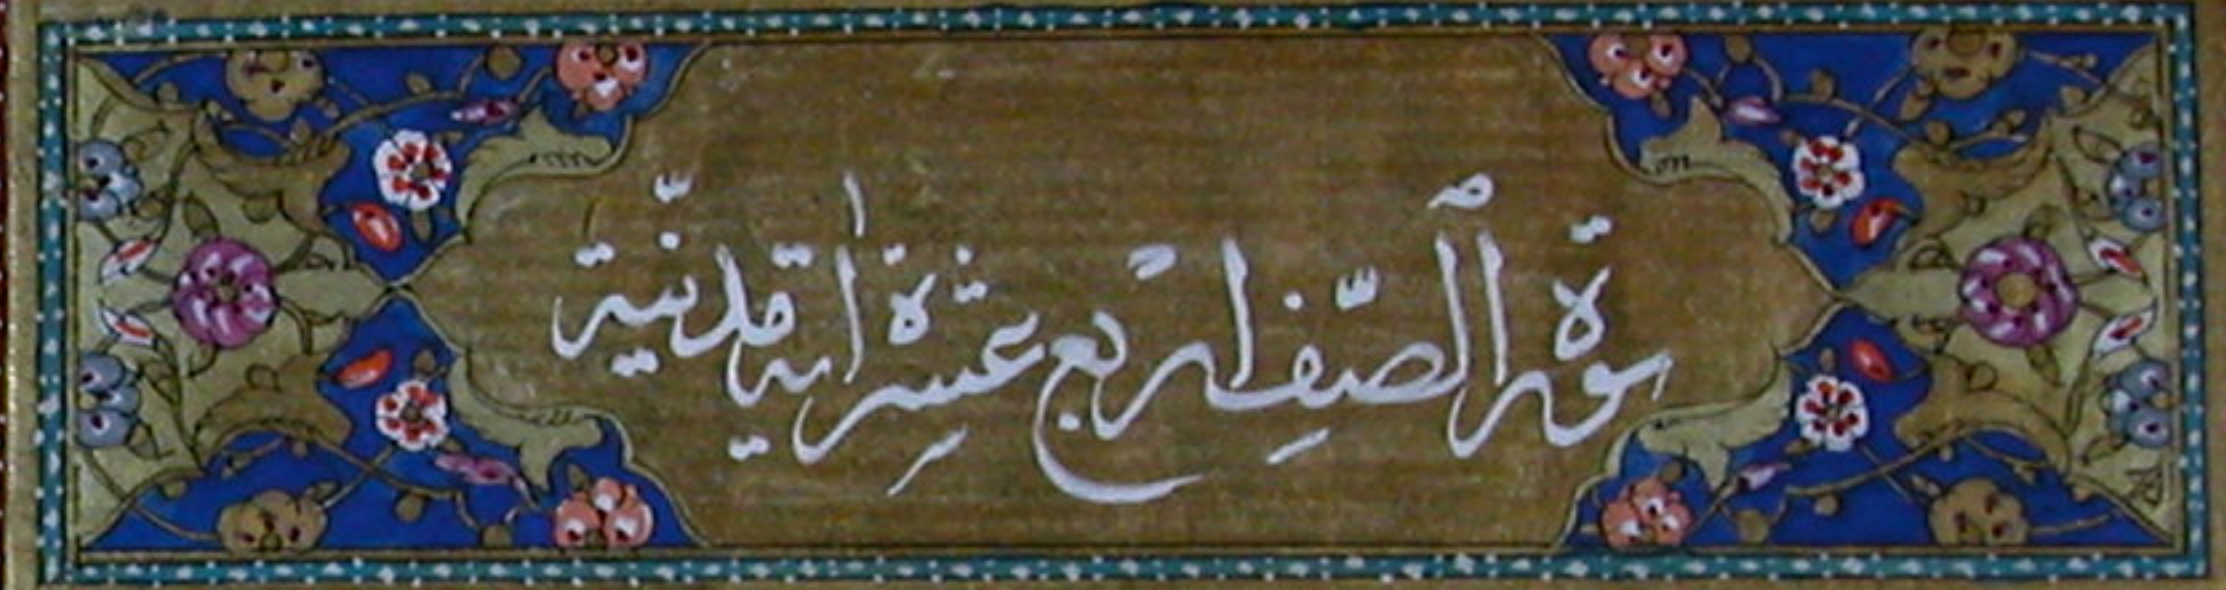 سورة الصّفِ اربع عشرِة اٰية مدنيّة